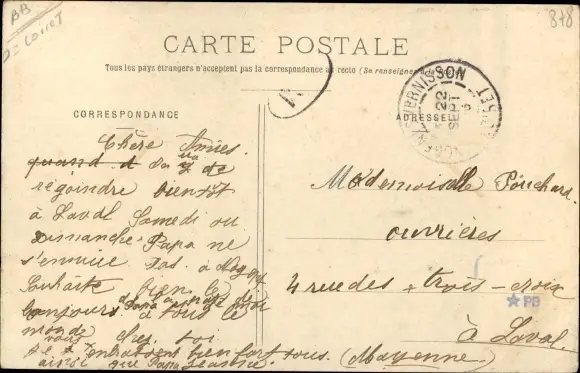 BB
D = Loiret
818
CARTE POSTALE
Tous les pays étrangers n'acceptent pas la correspondance au recto (Se renseigner à la poste)
CORRESPONDANCE
ADRESSE
22
SEPT
LOIRET
Chère Amies.
quand de
régoindre bientôt
à Laval Samedi ou
Dimanche. Papa ne
s'ennuie Pas. à Nogent
Souhaite bien le
bonjours à tous le
monde chez toi
embrassant bien fort tous.
ainsi que Papa
Mademoiselle Pouchard
ouvrières
4 rue des trois-croix
★ PB
à Laval
(Mayenne)